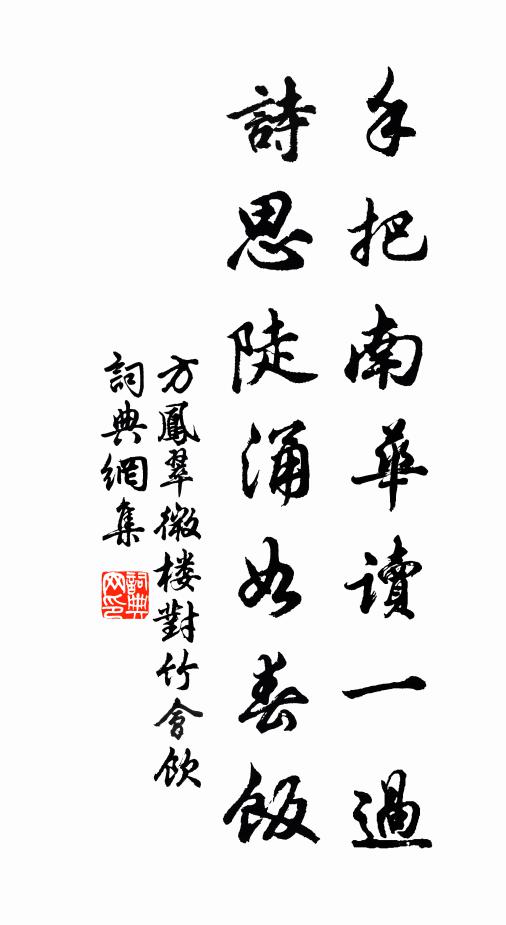 手把南華讀一過
詩思陡涌如春飯
方鳳翠微楼對竹會飲
詞典網集
詞典网印